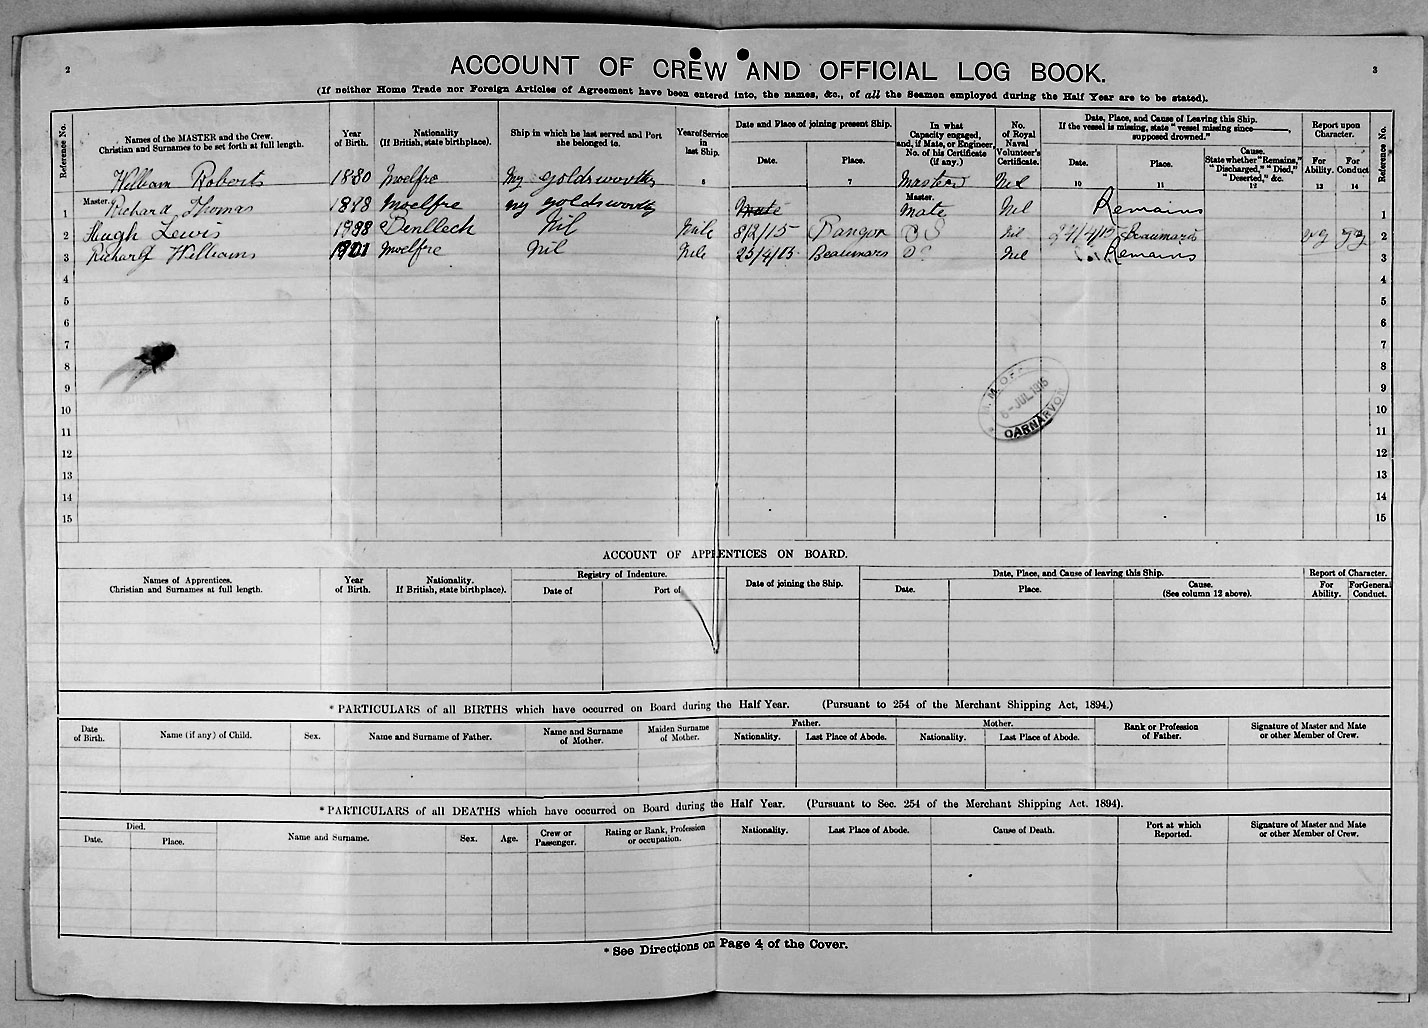 2
3
ACCOUNT OF CREW AND OFFICIAL LOG BOOK.
(If neither Home Trade nor Foreign Articles of Agreement have been entered into, the names, &c., of all the Seamen employed during the Half Year are to be stated).
Reference No. Names of the MASTER and the Crew. Christian and Surnames to be set forth at full length. Year of Birth. Nationality (If British, state birthplace). Ship in which he last served and Port she belonged to. Year of Service in last Ship. Date and Place of joining present Ship. Date. Place. In what Capacity engaged, and, if Mate, or Engineer, No. of his Certificate (if any.) No. of Royal Naval Volunteer's Certificate. Date, Place, and Cause of Leaving this Ship. If the vessel is missing, state "vessel missing since———, supposed drowned." Date. Place. Cause. State whether "Remains," "Discharged," "Died," "Deserted," &c. Report upon Character. For Ability. For Conduct Reference No.
6 7 10 11 12 13 14
William Roberts 1880 Moelfre My Goldsworthy Master Nil
Master. Master.
1 Richard Thomas Moelfre My Goldsworthy Mate Mate Nil Remains 1
2 Hugh Lewis Benllech Nil Nile 8/2/15 Bangor OS Nil Beaumaris vg vg 2
3 Richard Williams 1901 Moelfre Nil Nile 25/4/15 Beaumars Nil Remains 3
4 4
5 5
6 6
7 7
8 8
9 9
10 10
11 11
12 12
13 13
14 14
15 15
M. M. OF
6-JUL 1915
CARNARVON
ACCOUNT OF APPRENTICES ON BOARD.
Names of Apprentices. Christian and Surnames at full length. Year of Birth. Nationality. If British, state birthplace). Registry of Indenture. Date of Port of Date of joining the Ship. Date, Place, and Cause of leaving this Ship. Date. Place. Cause. (See column 12 above). Report of Character. For Ability. For General Conduct.
* PARTICULARS of all BIRTHS which have occurred on Board during the Half Year. (Pursuant to 254 of the Merchant Shipping Act, 1894.)
Date of Birth. Name (if any) of Child. Sex. Name and Surname of Father. Name and Surname of Mother. Maiden Surname of Mother. Father. Nationality. Last Place of Abode. Mother. Nationality. Last Place of Abode. Rank or Profession of Father. Signature of Master and Mate or other Member of Crew.
* PARTICULARS of all DEATHS which have occurred on Board during the Half Year. (Pursuant to Sec. 254 of the Merchant Shipping Act. 1894).
Died. Date. Place. Name and Surname. Sex. Age. Crew or Passenger. Rating or Rank, Profession or occupation. Nationality. Last Place of Abode. Cause of Death. Port at which Reported. Signature of Master and Mate or other Member of Crew.
* See Directions on Page 4 of the Cover.